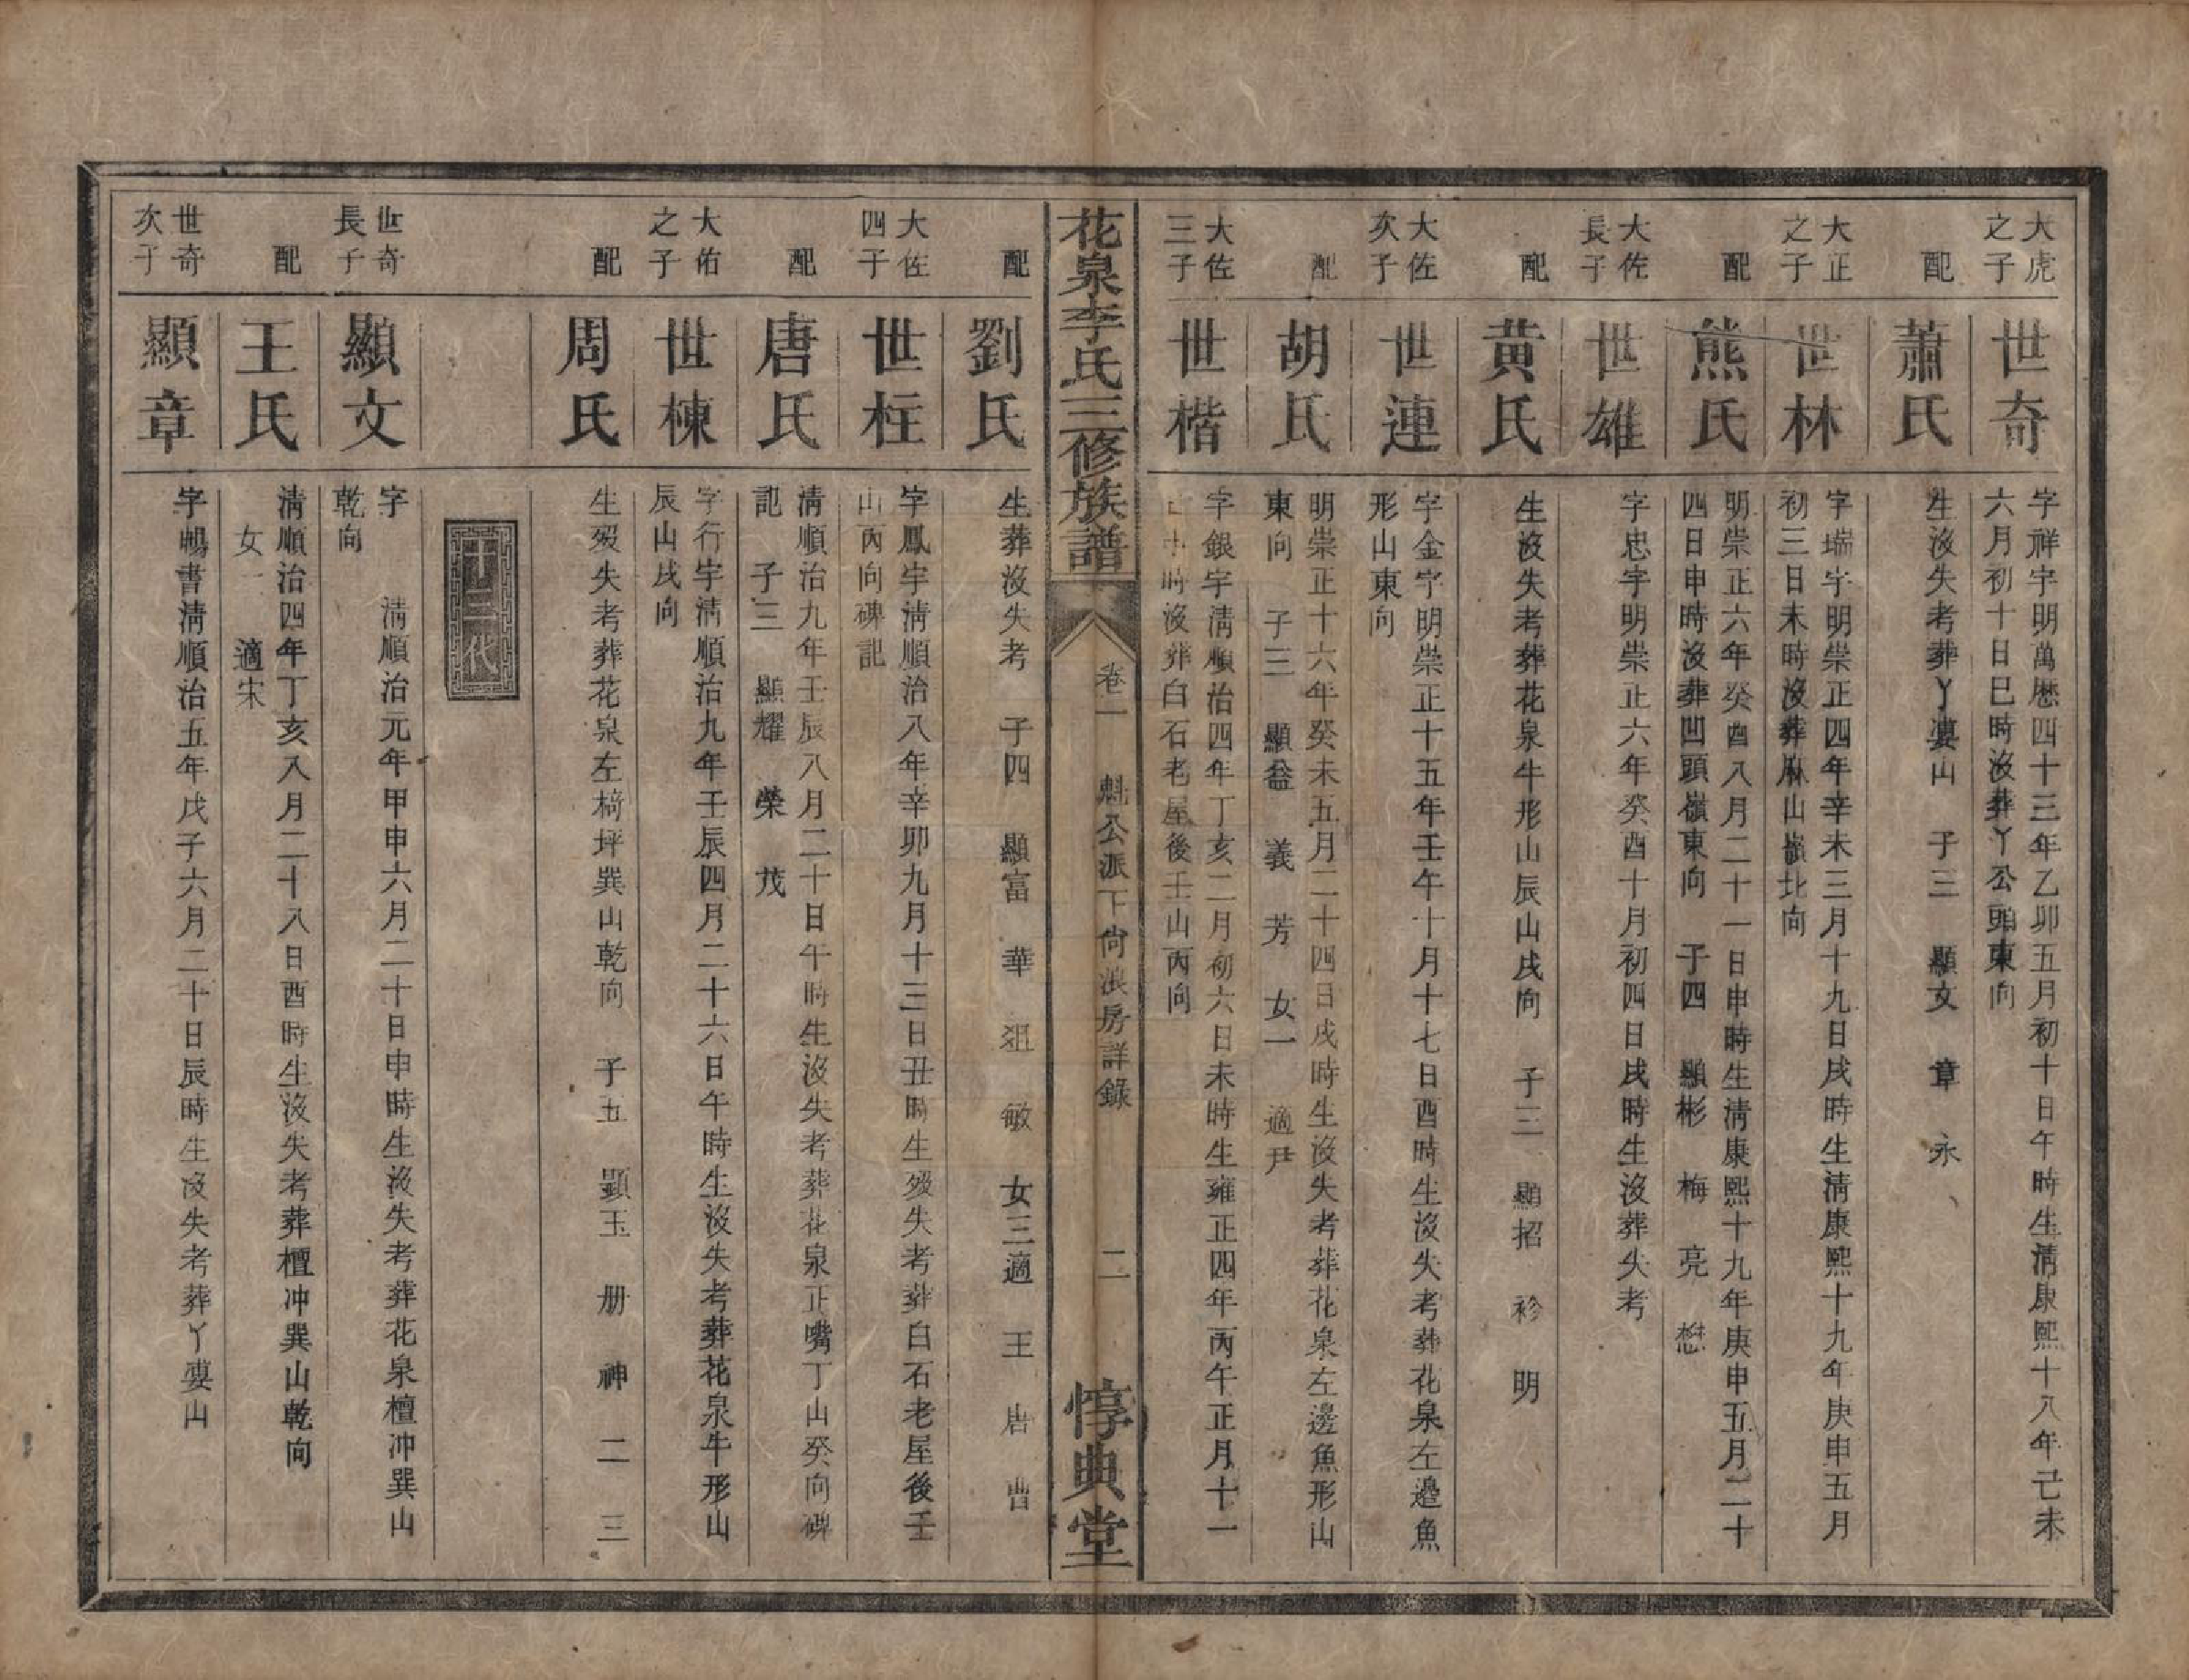 大虎
之子
世奇
字祥宇明萬厯四十三年乙卯五月初十日午時生淸康熙十八年己未
六月初十日巳時沒葬丫公頭東向
配
蕭氏
生沒失考葬丫婆山 子三 顯文 章 永
大正
之子
世林
字瑞宇明崇正四年辛未三月十九日戌時生淸康熙十九年庚申五月
初三日未時沒葬麻山嶺北向
配
熊氏
明崇正六年癸酉八月二十一日申時生淸康熙十九年庚申五月二十
四日申時沒葬凹頭嶺東向 子四 顯彬 梅 亮 懋
大佐
長子
世雄
字忠宇明崇正六年癸酉十月初四日戌時生沒葬失考
配
黄氏
生沒失考葬花泉牛形山辰山戌向 子三 顯招 袗 明
大佐
次子
世連
字金宇明崇正十五年壬午十月十七日酉時生沒失考葬花泉左邉魚
形山東向
配
胡氏
明崇正十六年癸未五月二十四日戌時生沒失考葬花泉左邊魚形山
東向 子三 顯益 義 芳 女一 適尹
大佐
三子
世楷
字銀宇淸順治四年丁亥二月初六日未時生雍正四年丙午正月十一
日申時沒葬白石老屋後壬山丙向
花泉李氏三修族譜
卷二 魁公派下尙浪房詳錄
二
惇典堂
配
劉氏
生葬沒失考 子四 顯富 華 爼 敏 女三適 王 唐 曹
大佐
四子
世柱
字鳳宇淸順治八年辛卯九月十三日丑時生歿失考葬白石老屋後壬
山丙向碑記
配
唐氏
淸順治九年壬辰八月二十日午時生沒失考葬花泉正嘴丁山癸向碑
記 子三 顯耀 榮 茂
大佑
之子
世棟
字行宇淸順治九年壬辰四月二十六日午時生沒失考葬花泉牛形山
辰山戌向
配
周氏
生歿失考葬花泉左椅坪巽山乾向 子五 顕玉 册 神 二 三
十二代
世奇
長子
顯文
字 淸順治元年甲申六月二十日申時生沒失考葬花泉檀冲巽山
乾向
配
王氏
淸順治四年丁亥八月二十八日酉時生沒失考葬檀冲巽山乾向
女一 適宋
世奇
次子
顯章
字暢書淸順治五年戊子六月二十日辰時生沒失考葬丫婆山